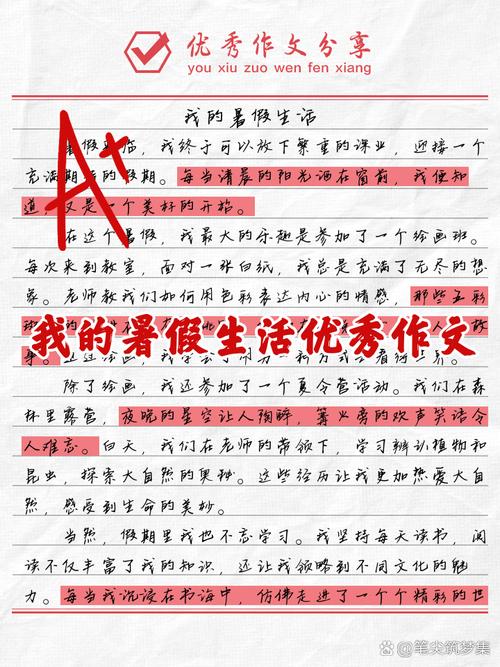 优秀作文分享
you xiu zuo wen fen xiang
我的暑假生活
A+
暑假来临，我终于可以放下繁重的课业，迎接一个
充满期待的假期。每当清晨的阳光洒在窗前，我便知
道，又是一个美好的开始。
在这个暑假，我最大的乐趣是参加了一个绘画班。
每次来到教室，面对一张白纸，我总是充满了无尽的想
象。老师教我们如何用色彩表达内心的情感，那些五彩
我的暑假生活优秀作文
除了绘画，我还参加了一个夏令营活动。我们在森
林里露营，夜晚的星空让人陶醉，篝火旁的欢声笑语令
人难忘。白天，我们在老师的带领下，学习辨认植物和
昆虫，探索大自然的奥秘。这些经历让我更加热爱大自
然，感受到生命的美妙。
当然，假期里我也不忘学习。我坚持每天读书，阅
读不仅丰富了我的知识，还让我领略到不同文化的魅
力。每当我沉浸在书海中，仿佛走进了一个个精彩的世
@笔尖筑梦集